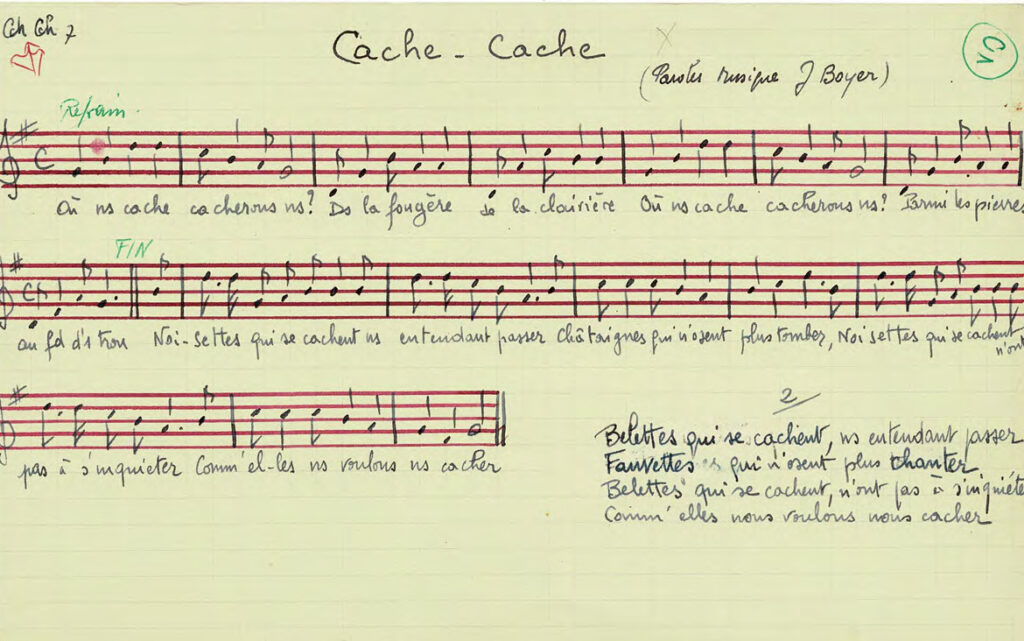 Ch Ch 7
Cache - Cache
(Paroles musique J Boyer)
C1
Refrain
Où ns cache cacherons ns? Ds la fougère ds la clairière Où ns cache cacherons ns? Parmi les pierres
FIN
au fd d'1 trou Noi-settes qui se cachent ns entendant passer Châtaignes qui n'osent plus tomber, Noisettes qui se cachent
n'ont
pas à s'inquiéter Comm' el-les ns voulons ns cacher
2
Belettes qui se cachent, ns entendant passer
Fauvettes qui n'osent plus chanter
Belettes qui se cachent, n'ont pas à s'inquiéte
Comm' elles nous voulons nous cacher